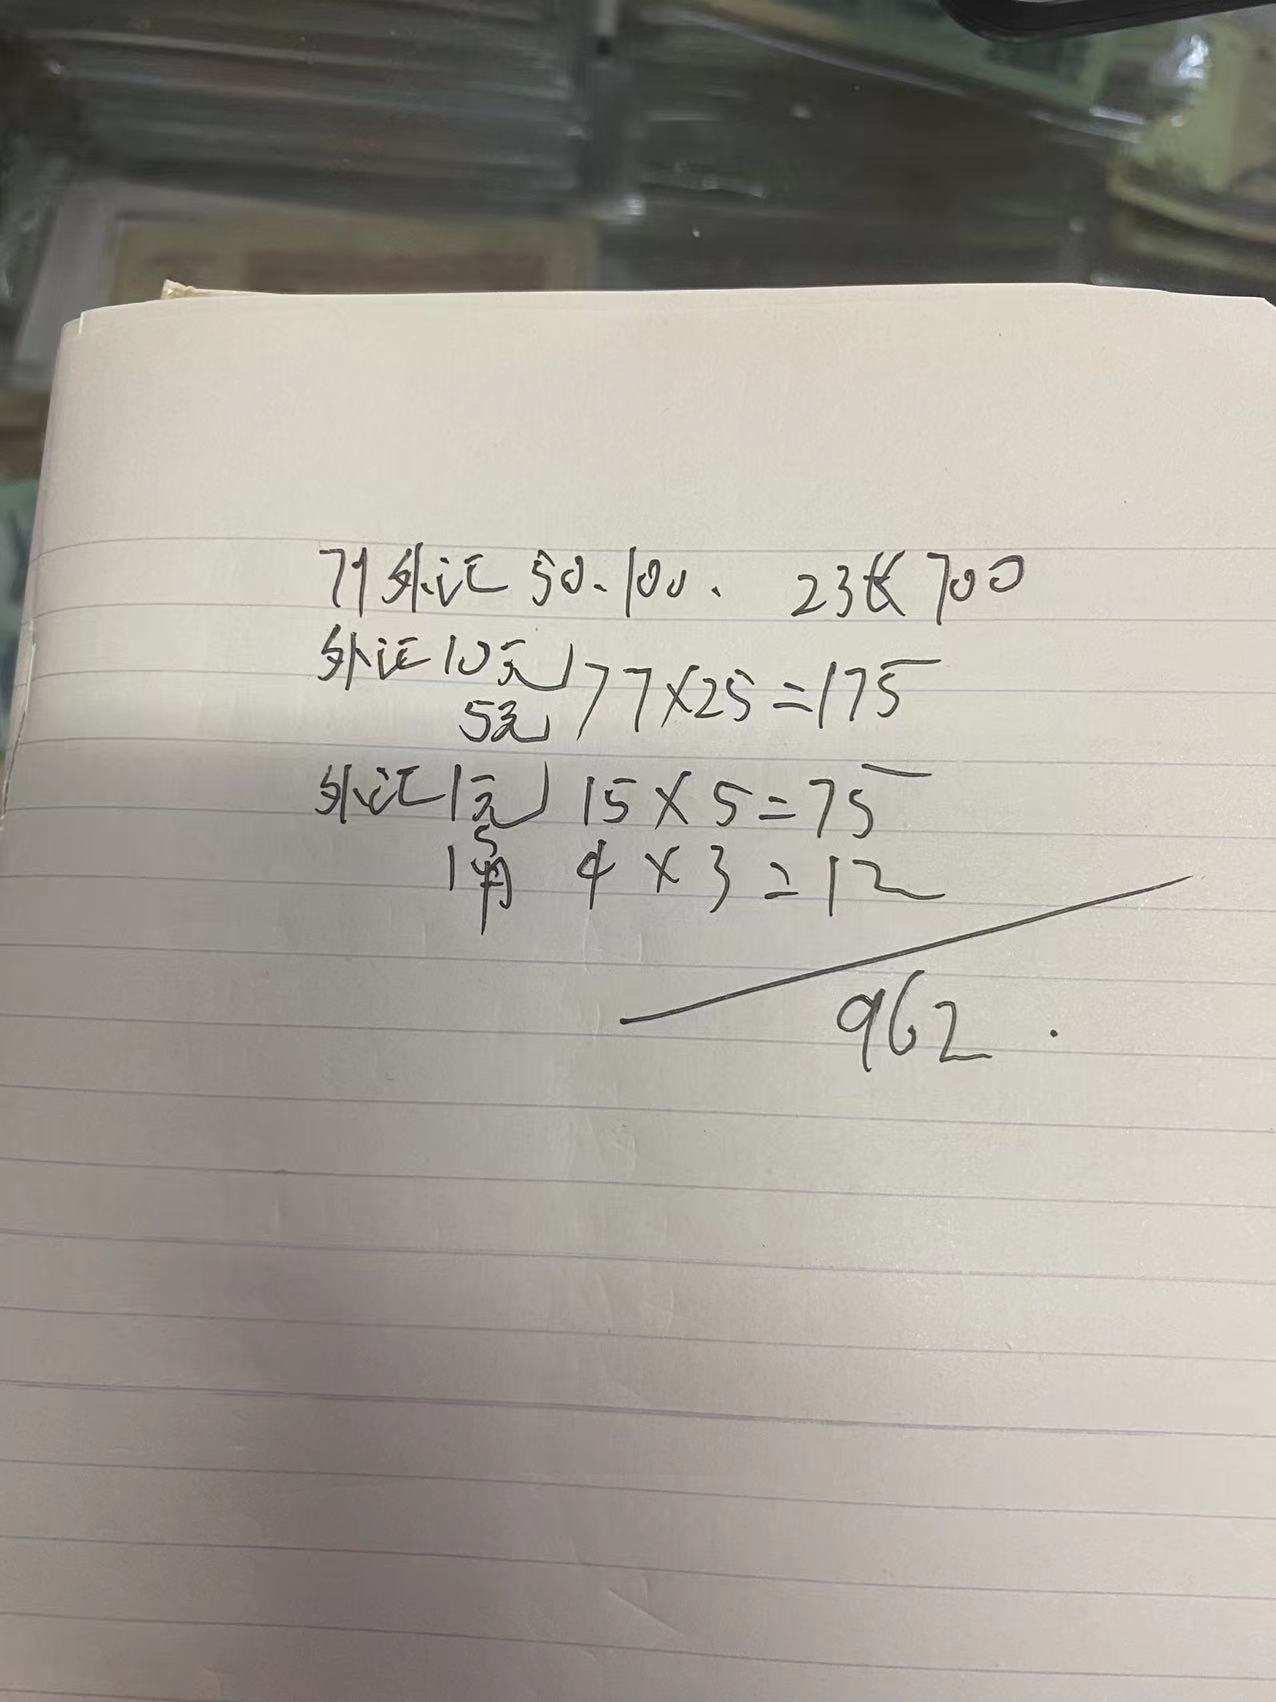 79外汇 50.100. 23张 700
外汇10元 77×25=175
5元
外汇1元 15×5=75
1角 4×3=12
5
962.